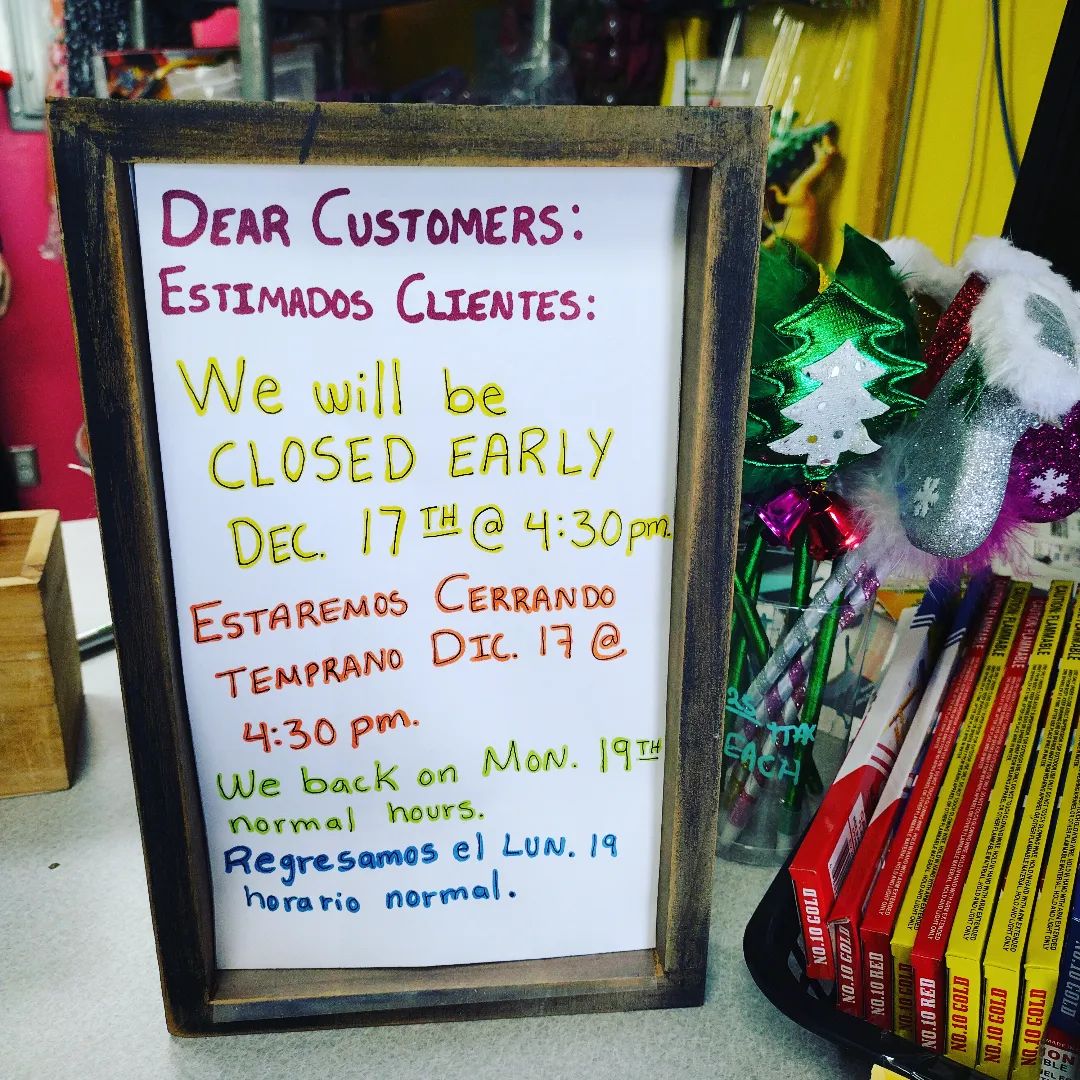 DEAR CUSTOMERS:
ESTIMADOS CLIENTES:
We will be
CLOSED EARLY
DEC. 17TH @ 4:30pm.
ESTAREMOS CERRANDO
TEMPRANO DIC. 17 @
4:30 pm.
We back on MON. 19TH
normal hours.
Regresamos el LUN. 19
horario normal.
EACH
NO.10 GOLD
NO.10 GOLD
NO.10 RED
NO.10 GOLD
NO.10 RED
NO.10 GOLD
NO.10 GOLD
NO.10 GOLD
CAUTION FLAMMABLE
CAUTION FLAMMABLE
CAUTION FLAMMABLE
CAUTION FLAMMABLE